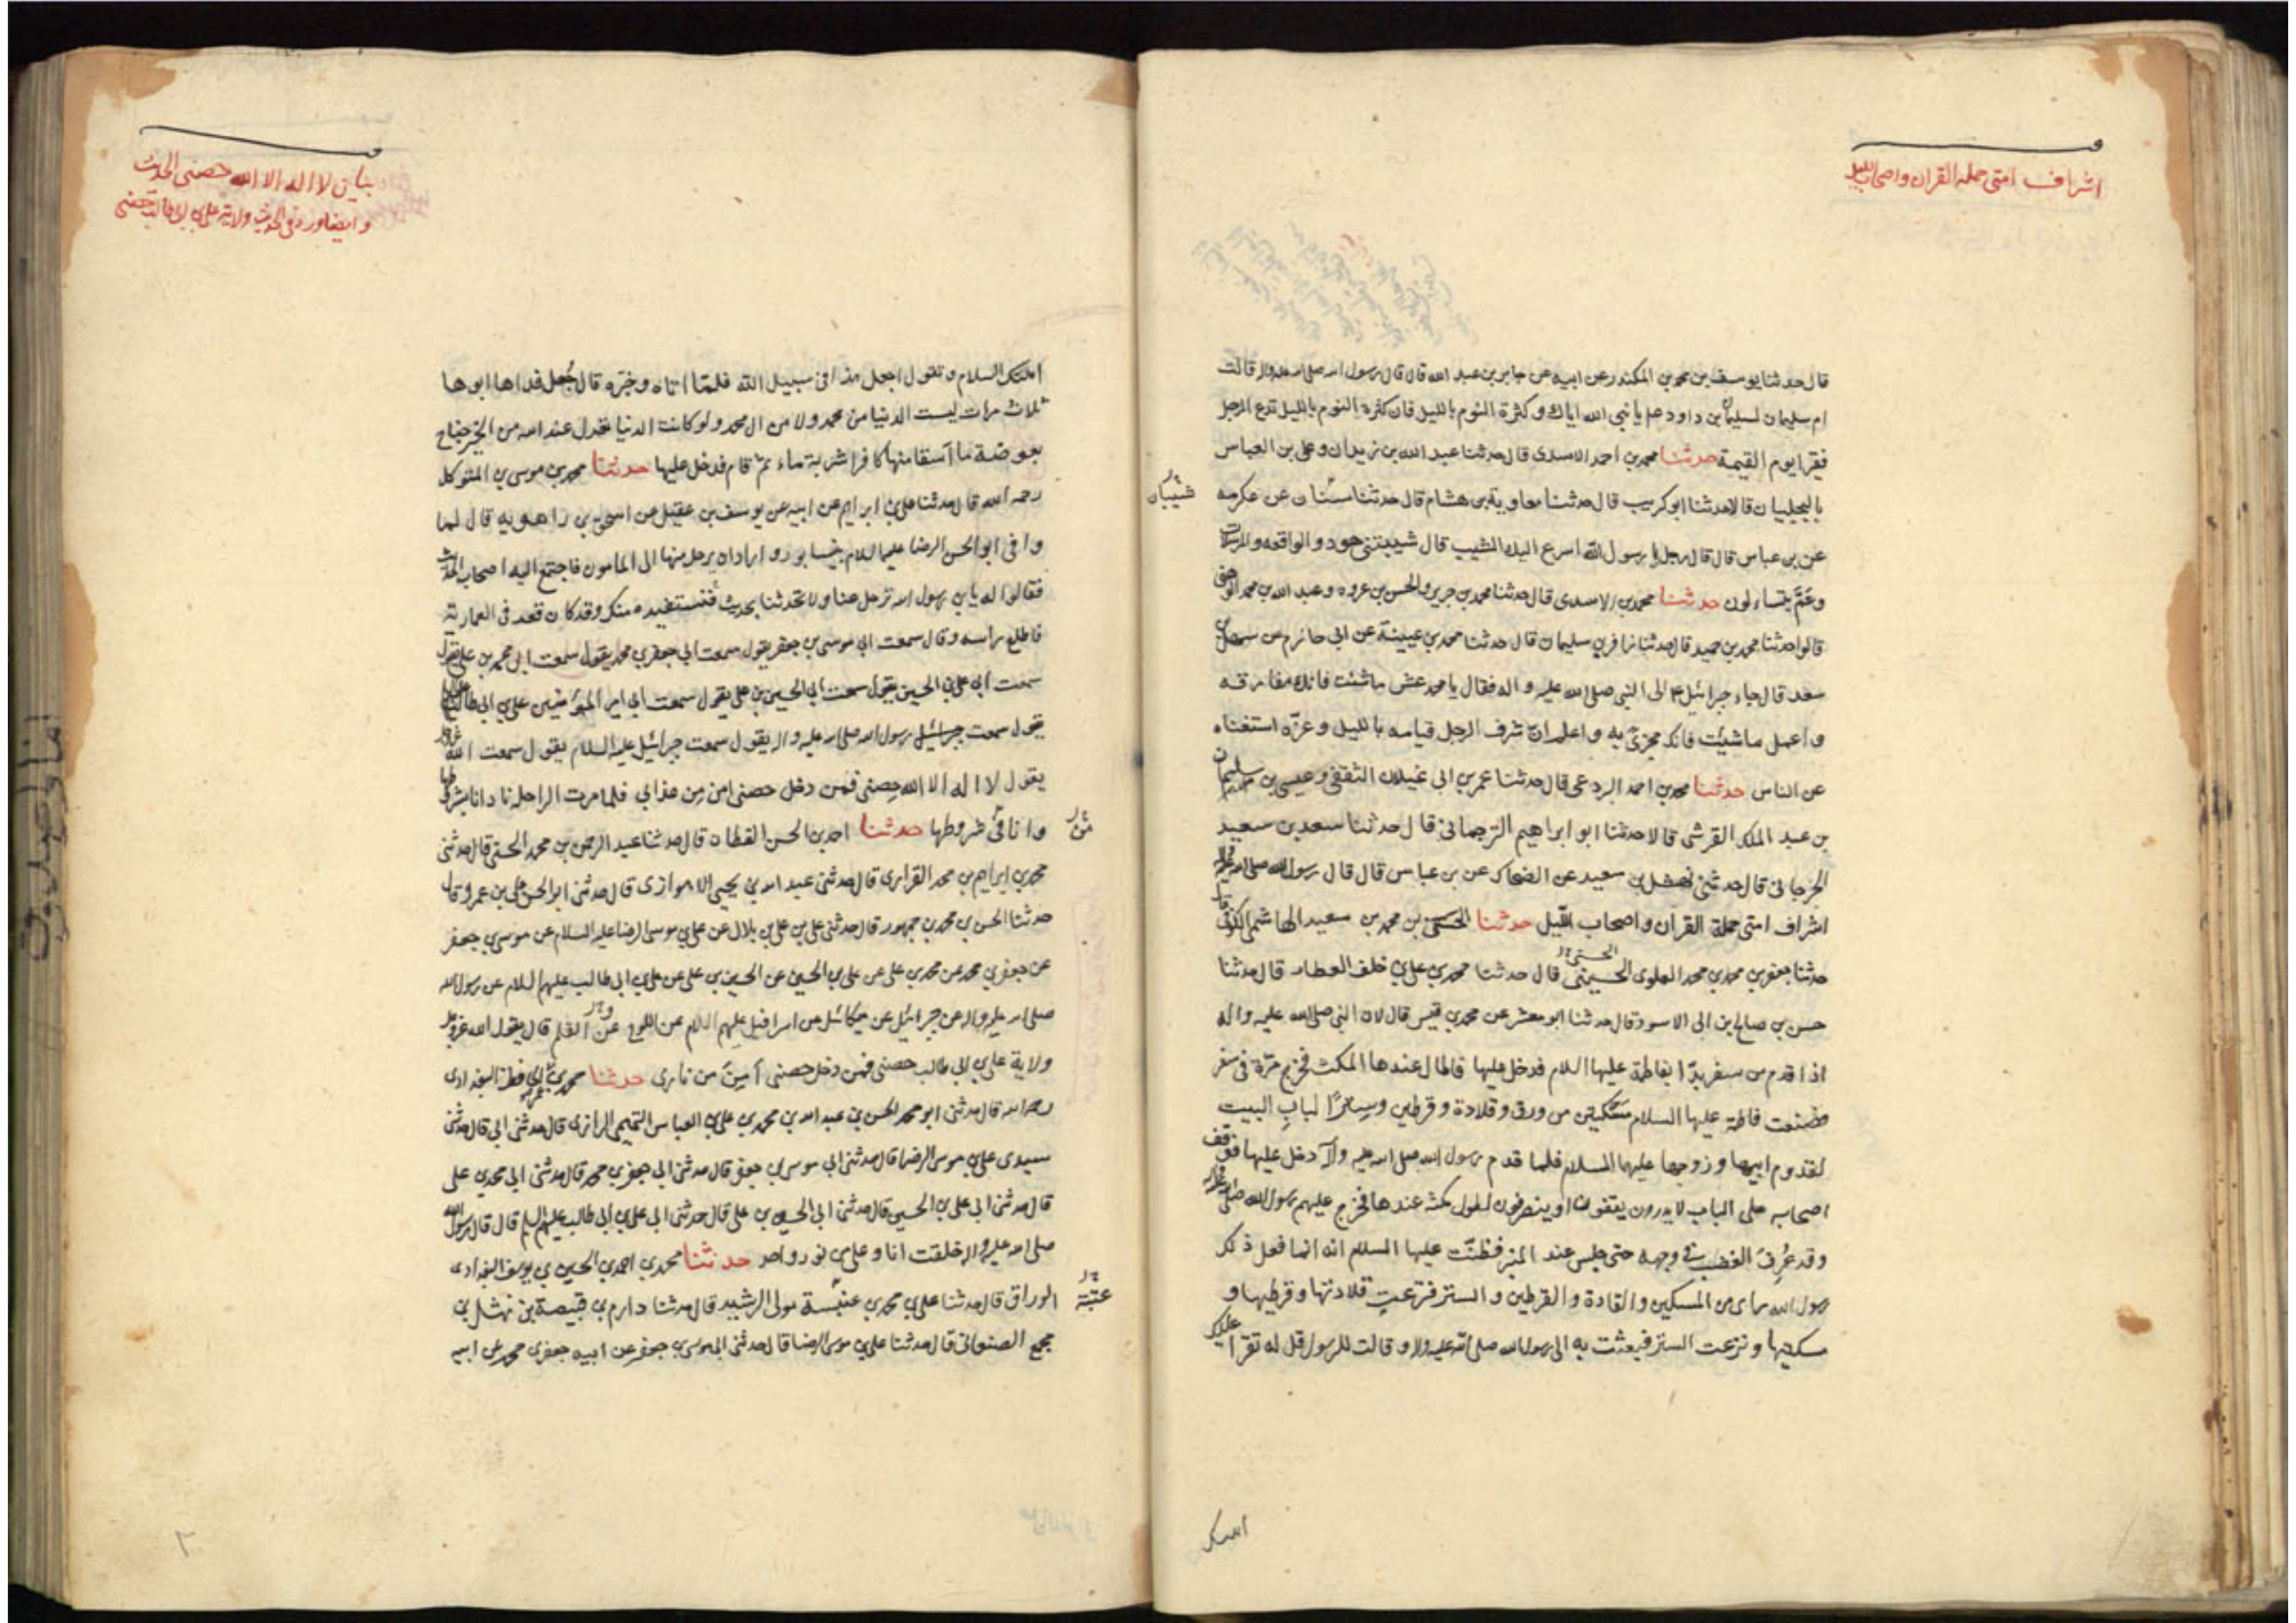 اشراف امتى حملة القران واصحاب الليل
قال حدثنا يوسف بن محمد بن المكندر عن ابيه عن جابر بن عبد الله قال قال رسول الله صلى الله عليه واله قالت
ام سليمان لسليمان بن داود ع يا نبى الله اياك وكثرة النوم بالليل فان كثرة النوم بالليل تدع الرجل
فقيرا يوم القيمة حدثنا محمد بن احمد الاسدى قال حدثنا عبد الله بن زيدان وعلى بن العباس
بالبجليان قالا حدثنا ابو كريب قال حدثنا معاوية بن هشام قال حدثنا سنان عن عكرمه
شيبان
عن بن عباس قال قال رجل يا رسول الله اسرع اليك المشيب قال شيبتنى هود والواقعه والمرسلات
وعمّ يتساءلون حدثنا محمد بن الاسدى قال حدثنا محمد بن جرير والحسن بن عروه وعبد الله بن محمد الوهبى
قالوا حدثنا محمد بن حميد قال حدثنا زافر بن سليمان قال حدثنا محمد بن عيينة عن ابى حازم عن سهل بن
سعد قال جاء جبرائيل ع الى النبى صلى الله عليه واله فقال يا محمد عش ما شئت فانك مفارقه
واعمل ما شئت فانك مجزىّ به واعلم ان شرف الرجل قيامه بالليل وعزّه استغناه
عن الناس حدثنا محمد بن احمد البردعى قال حدثنا عمر بن ابى غيلان الثقفى وعيسى بن سليمان
بن عبد الملك القرشى قالا حدثنا ابو ابراهيم الترجمانى قال حدثنا سعد بن سعيد
الجرجانى قال حدثنى نهشل بن سعيد عن الضحاك عن بن عباس قال قال رسول الله صلى الله عليه واله
اشراف امتى حملة القران واصحاب الليل حدثنا الحسن بن محمد بن سعيد الهاشمى الكوفى قال
حدثنا جعفر بن محمد بن محمد العلوى الحسينى قال حدثنا محمد بن على بن خلف العطار قال حدثنا
حسن بن صالح بن ابى الاسود قال حدثنا ابو معشر عن محمد بن قيس قال كان النبى صلى الله عليه واله
اذا قدم من سفر بدّا بفاطمة عليها السلام فدخل عليها فاطال عندها المكث فخرج مرّة فى سفر
فصنعت فاطمة عليها السلام مسكتين من ورق وقلادة وقرطين وسترًا لباب البيت
لقدوم ابيها وزوجها عليهما السلام فلما قدم رسول الله صلى الله عليه واله دخل عليها فوقف
اصحابه على الباب لا يدرون يقفون او ينصرفون لطول مكثه عندها فخرج عليهم رسول الله صلى الله عليه واله
وقد عُرِفَ الغضب فى وجهه حتى جلس عند المنبر فظنّت عليها السلام انه انما فعل ذلك
رسول الله لما راى من المسكتين والقلادة والقرطين والستر فنزعت قلادتها وقرطيها و
مسكتيها ونزعت الستر فبعثت به الى رسول الله صلى الله عليه واله وقالت للرسول قل له تقرا عليك
ابنتك
بيان لا اله الا الله حصنى الحديث
وايضا ورد فى الحديث ولاية على بن ابى طالب حصنى
ابنتك السلام وتقول اجعل هذا فى سبيل الله فلمّا اتاه وخبّره قال جُعل فداها ابوها
ثلاث مرات ليست الدنيا من محمد ولا من ال محمد ولو كانت الدنيا تعدل عند الله من الخير جناح
بعوضة ما اسقا منها كافرا شربة ماء ثمّ قام فدخل عليها حدثنا محمد بن موسى بن المتوكل
رحمه الله قال حدثنا على بن ابراهيم عن ابيه عن يوسف بن عقيل عن اسحق بن راهويه قال لما
وافى ابو الحسن الرضا عليه السلام بنيسابور واراد ان يرحل منها الى المامون فاجتمع اليه اصحاب الحديث
فقالوا له يا بن رسول الله ترحل عنا ولا تحدثنا بحديث فنستفيده منك وقد كان قعد فى العمارية
فاطلع راسه وقال سمعت ابى موسى بن جعفر يقول سمعت ابى جعفر بن محمد يقول سمعت ابى محمد بن على يقول
سمعت ابى على بن الحسين يقول سمعت ابى الحسين بن على يقول سمعت ابى امير المؤمنين على بن ابى طالب
يقول سمعت رسول الله صلى الله عليه واله يقول سمعت جبرائيل عليه السلام يقول سمعت الله عز وجل
يقول لا اله الا الله حصنى فمن دخل حصنى امن من عذابى فلما مرت الراحلة نادانا بشروطها
وانا فى شروطها حدثنا احمد بن الحسن القطان قال حدثنا عبد الرحمن بن محمد الحسنى قال حدثنى
من
محمد بن ابراهيم بن محمد الفزارى قال حدثنى عبد الله بن يحيى الاهوازى قال حدثنى ابو الحسن على بن عمرو قال
حدثنا الحسن بن محمد بن جمهور قال حدثنى على بن على بن بلال عن على بن موسى الرضا عليه السلام عن موسى بن جعفر
عن جعفر بن محمد عن محمد بن على عن على بن الحسين عن الحسين بن على عن على بن ابى طالب عليهم السلام عن رسول الله
صلى الله عليه واله عن جبرائيل عن ميكائيل عن اسرافيل عليهم السلام عن اللوح عن القلم قال يقول الله عز وجل
ولاية على بن ابى طالب حصنى فمن دخل حصنى آمِنَ من نارى حدثنا محمد بن البغدادى
رحمه الله قال حدثنى ابو محمد الحسن بن عبد الله بن محمد بن على بن العباس التميمى الرازى قال حدثنى ابى قال حدثنى
سيدى على بن موسى الرضا قال حدثنى ابى موسى بن جعفر قال حدثنى ابى جعفر بن محمد قال حدثنى ابى محمد بن على
قال حدثنى ابى على بن الحسين قال حدثنى ابى الحسين بن على قال حدثنى ابى على بن ابى طالب عليهم السلم قال قال رسول الله
صلى الله عليه واله خلقت انا وعلى من نور واحد حدثنا محمد بن احمد بن الحسين بن يوسف البغدادى
الوراق قال حدثنا على بن محمد بن عنبسة مولى الرشيد قال حدثنا دارم بن قبيصة بن نهشل بن
عتبة
مجمع الصنعانى قال حدثنا على بن موسى الرضا قال حدثنى ابى موسى بن جعفر عن ابيه جعفر بن محمد عن ابيه
٢